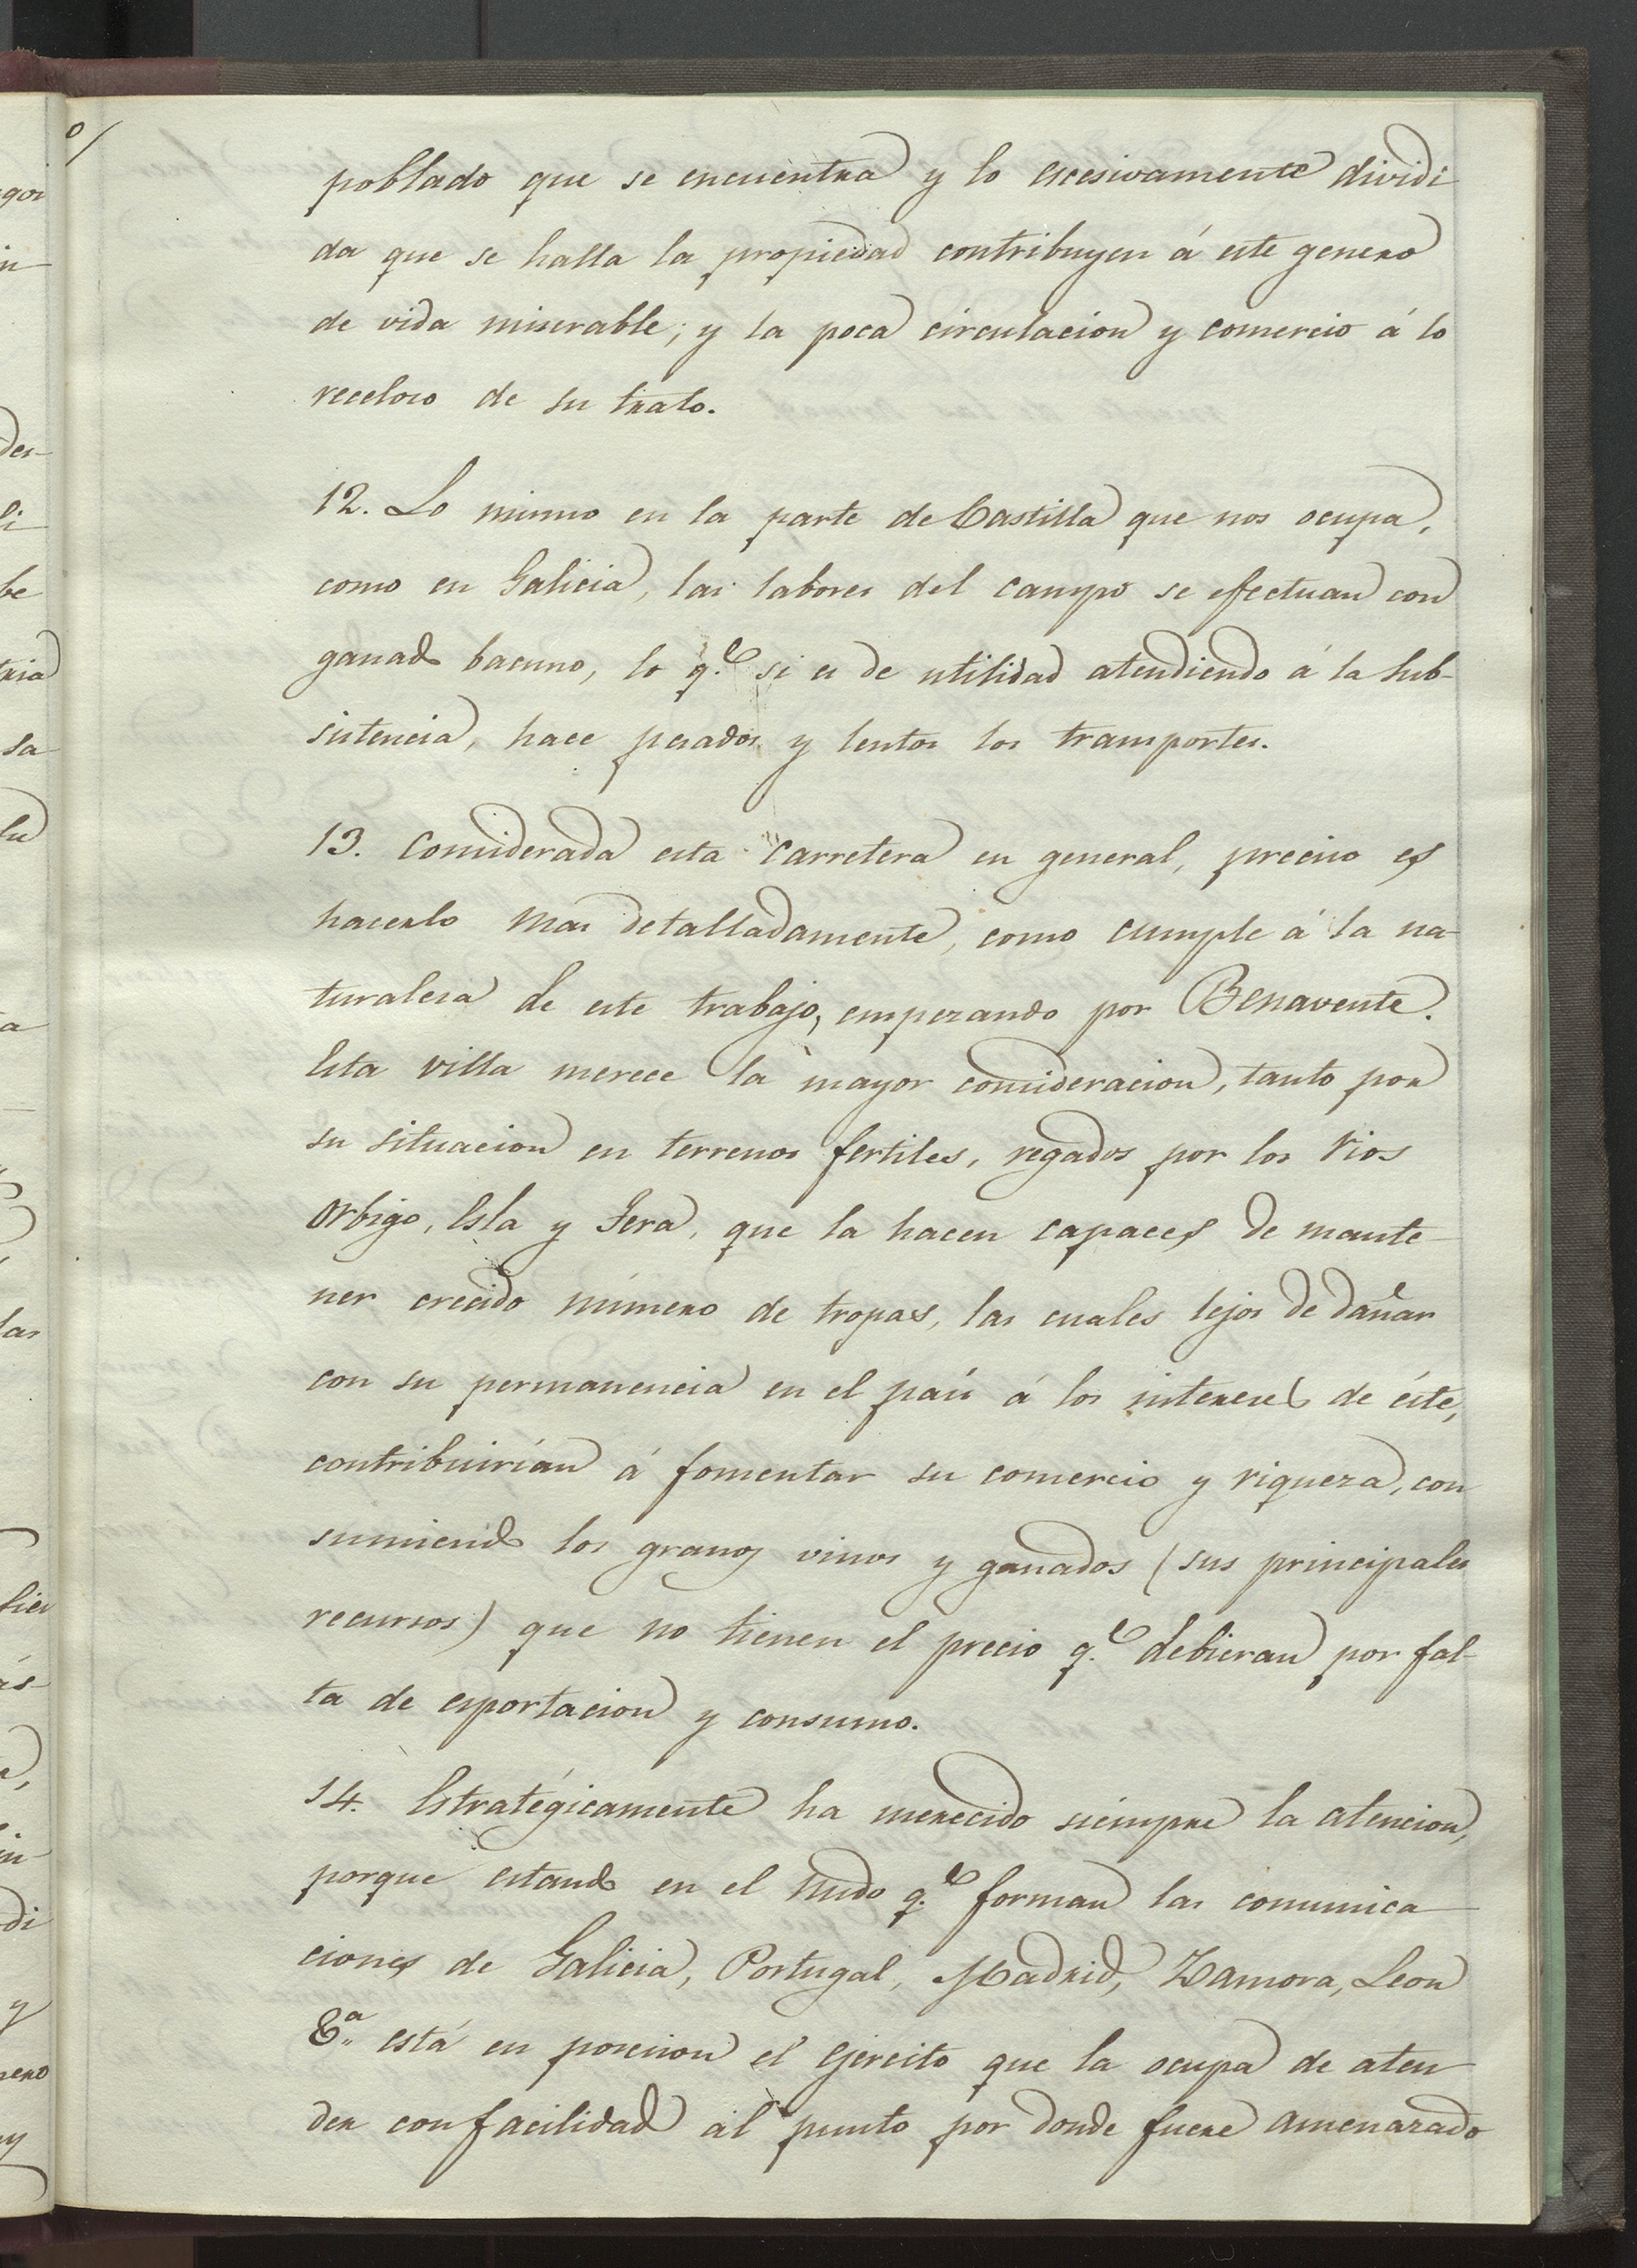 poblado que se encuentra y lo escesivamente dividi
da que se halla la propiedad contribuyen á este genero
de vida miserable; y la poca circulacion y comercio á lo
receloso de su trato.
12. Lo mismo en la parte de Castilla que nos ocupa,
como en Galicia, las labores del campo se efectuan con
ganado bacuno, lo q.e si es de utilidad atendiendo á la sub-
sistencia, hace pesados y lentos los transportes.
13. Considerada esta carretera en general, preciso es
hacerlo mas detalladamente, como cumple á la na-
turalesa de este trabajo, empezando por Benavente.
Esta villa merece la mayor consideracion, tanto por
su situacion en terrenos fertiles, regados por los rios
Orbigo, Esla y Tera, que la hacen capaces de mante-
ner crecido número de tropas, las cuales lejos de dañar
con su permanencia en el país á los intereses de éste,
contribuirían á fomentar su comercio y riqueza, con
sumiendo los granos vinos y ganados (sus principales
recursos) que no tienen el precio q.e debieran por fal-
ta de esportacion y consumo.
14. Estratégicamente ha merecido siempre la atencion,
porque estando en el nudo q.e forman las comunica-
ciones de Galicia, Portugal, Madrid, Zamora, Leon
&.a está en posicion el ejercito que la ocupa de aten-
der con facilidad al punto por donde fuere amenazado